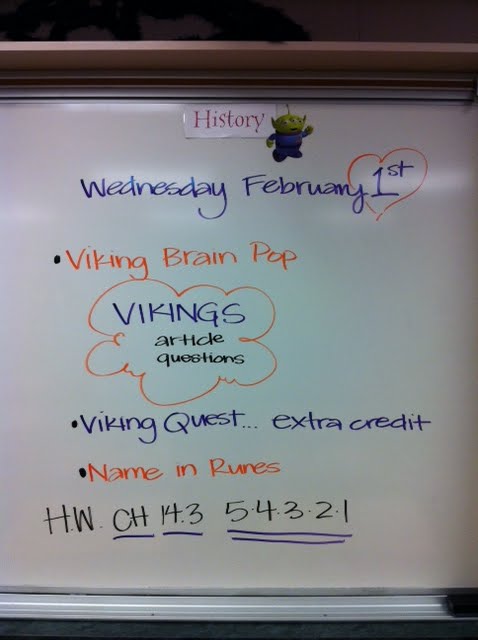 History
Wednesday February 1st
• Viking Brain Pop
VIKINGS
article
questions
• Viking Quest... extra credit
• Name in Runes
H.W. CH 14.3 5.4.3.2.1